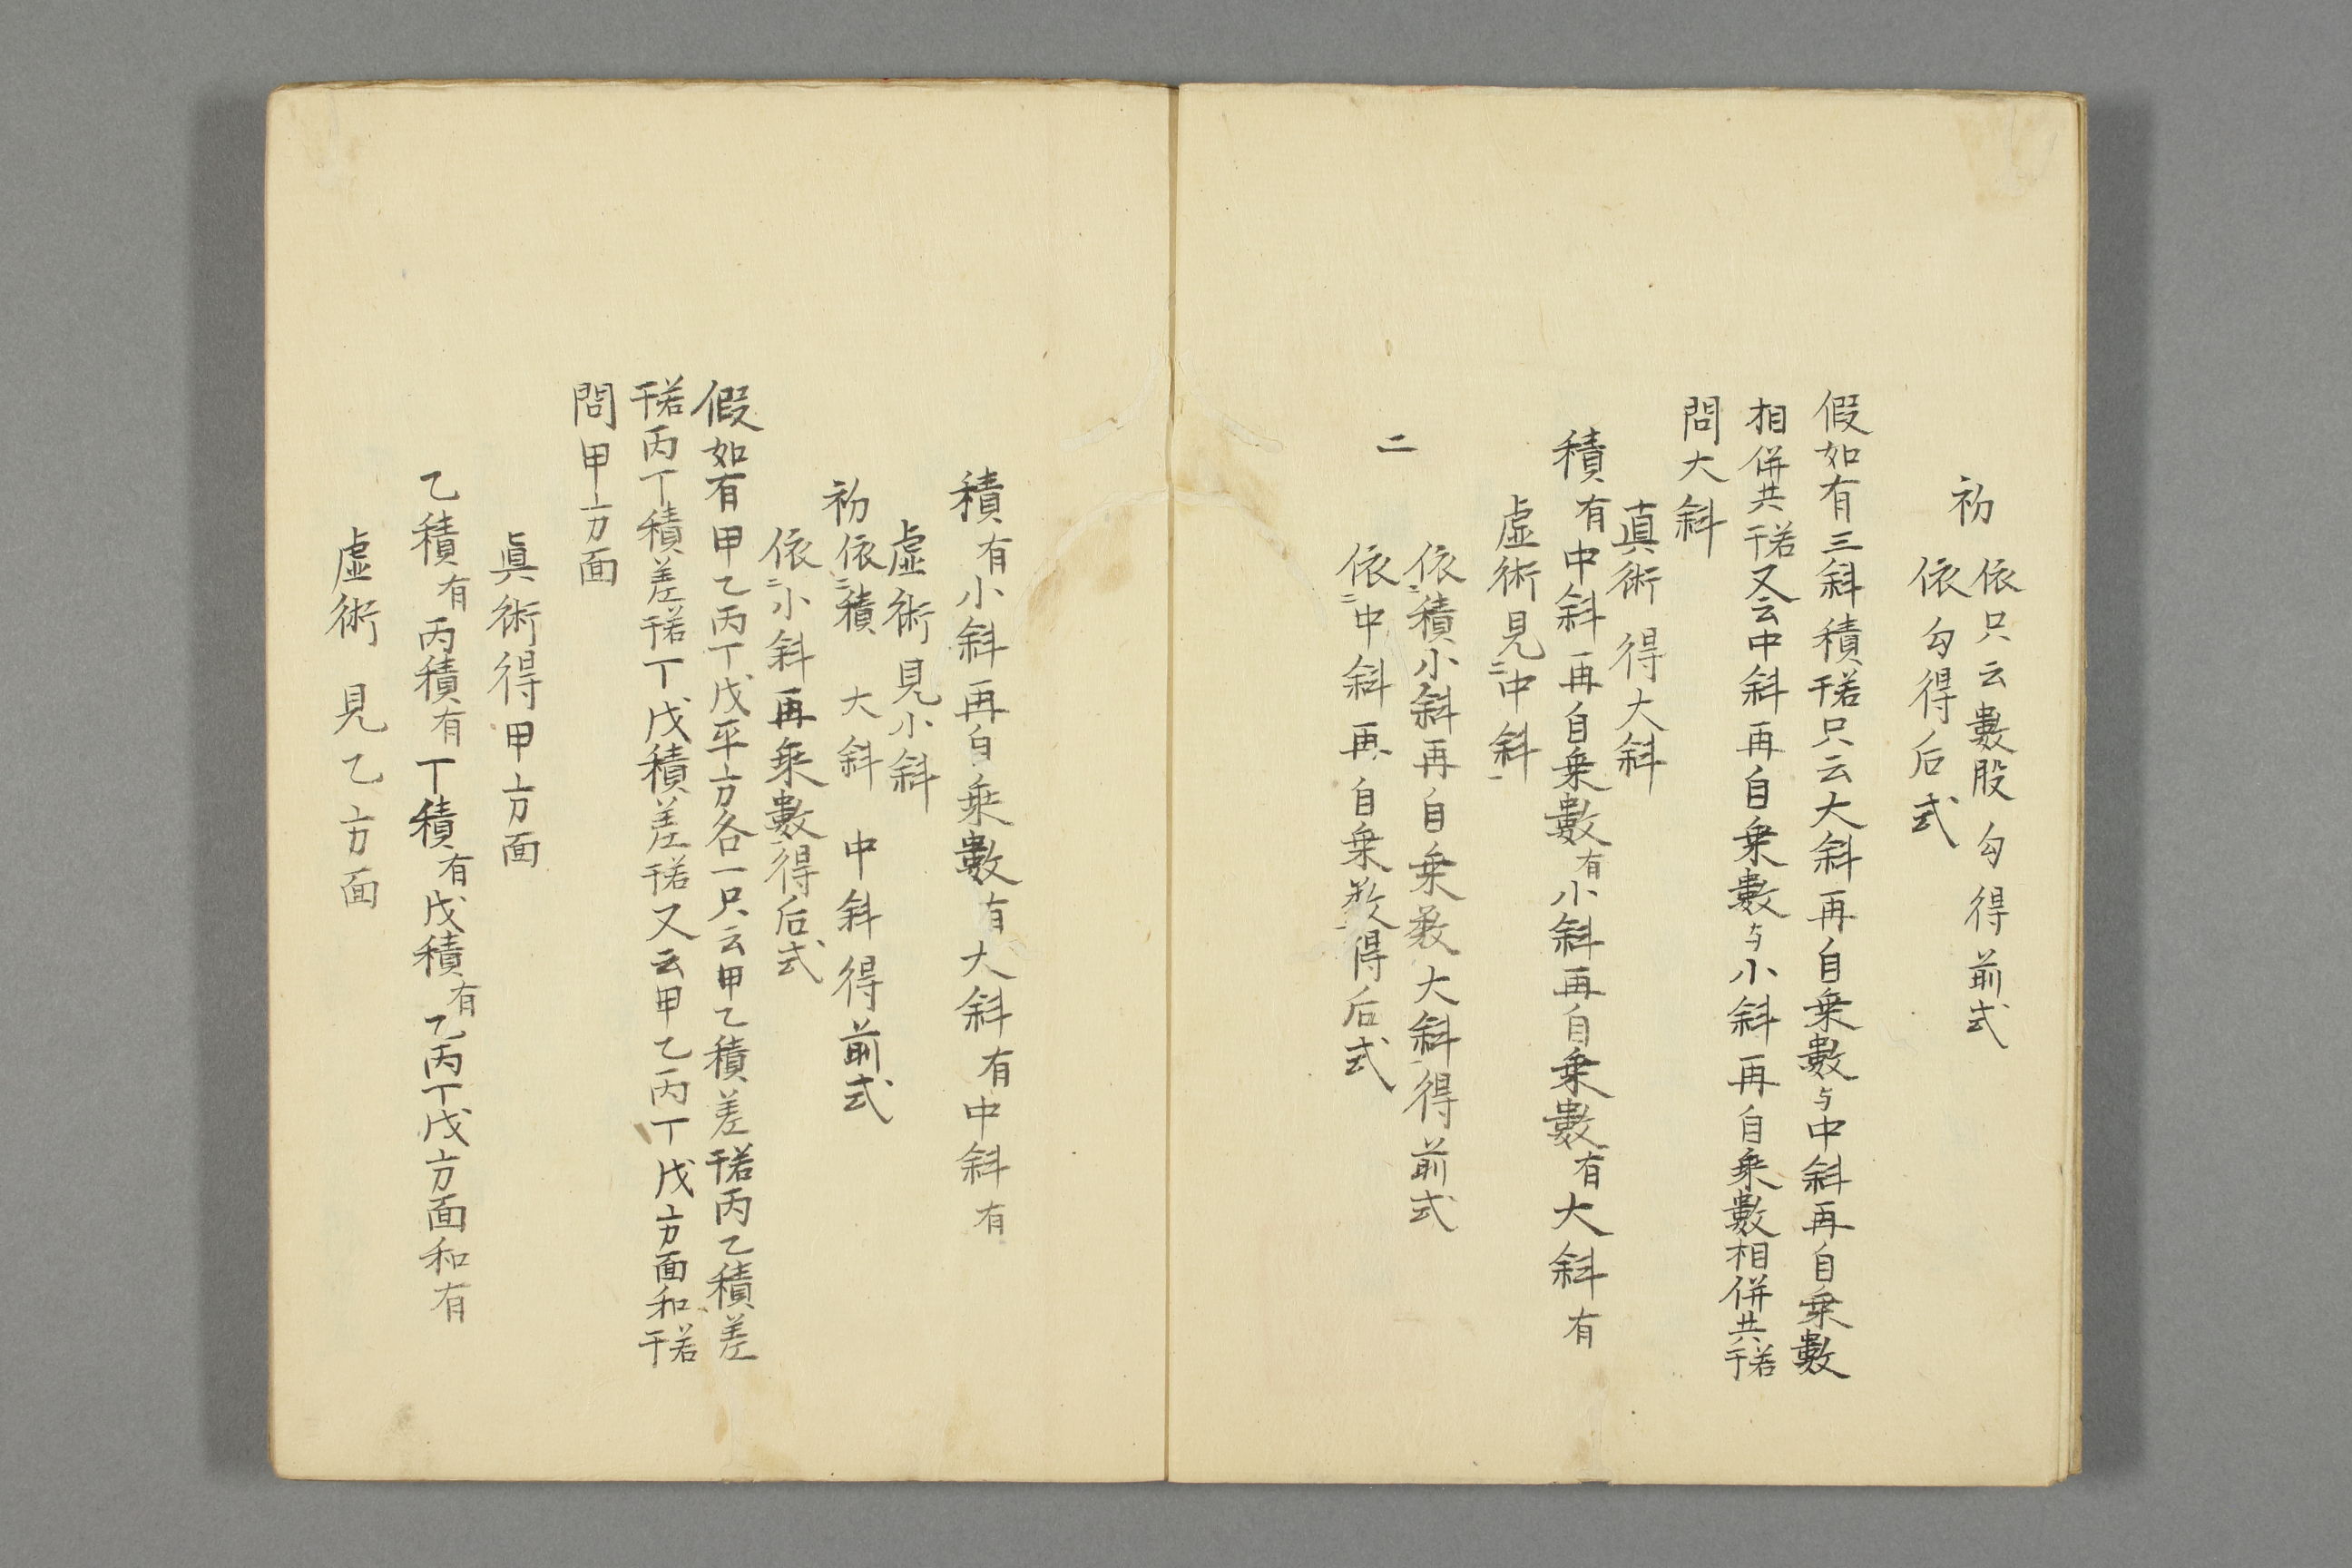 初
依只云數股勾得前式
依勾得后式
假如有三斜積若干只云大斜再自乗數与中斜再自乗數
相併共若干又云中斜再自乗數与小斜再自乗數相併共若干
問大斜
真術得大斜
積有中斜再自乗數有小斜再自乗數有大斜有
虚術見二中斜一
二
依二積小斜再自乗数大斜一得前式
依二中斜再自乗数一得后式
積有小斜再自乗數有大斜有中斜有
虚術見小斜
初依二積大斜中斜得前式
依二小斜再乗數一得后式
假如有甲乙丙丁戊平方各一只云甲乙積差若干丙乙積差
若干丙丁積差若干丁戊積差若干又云甲乙丙丁戊方面和若干
問甲方面
眞術得甲方面
乙積有丙積有丁積有戊積有乙丙丁戊方面和有
虚術見乙方面